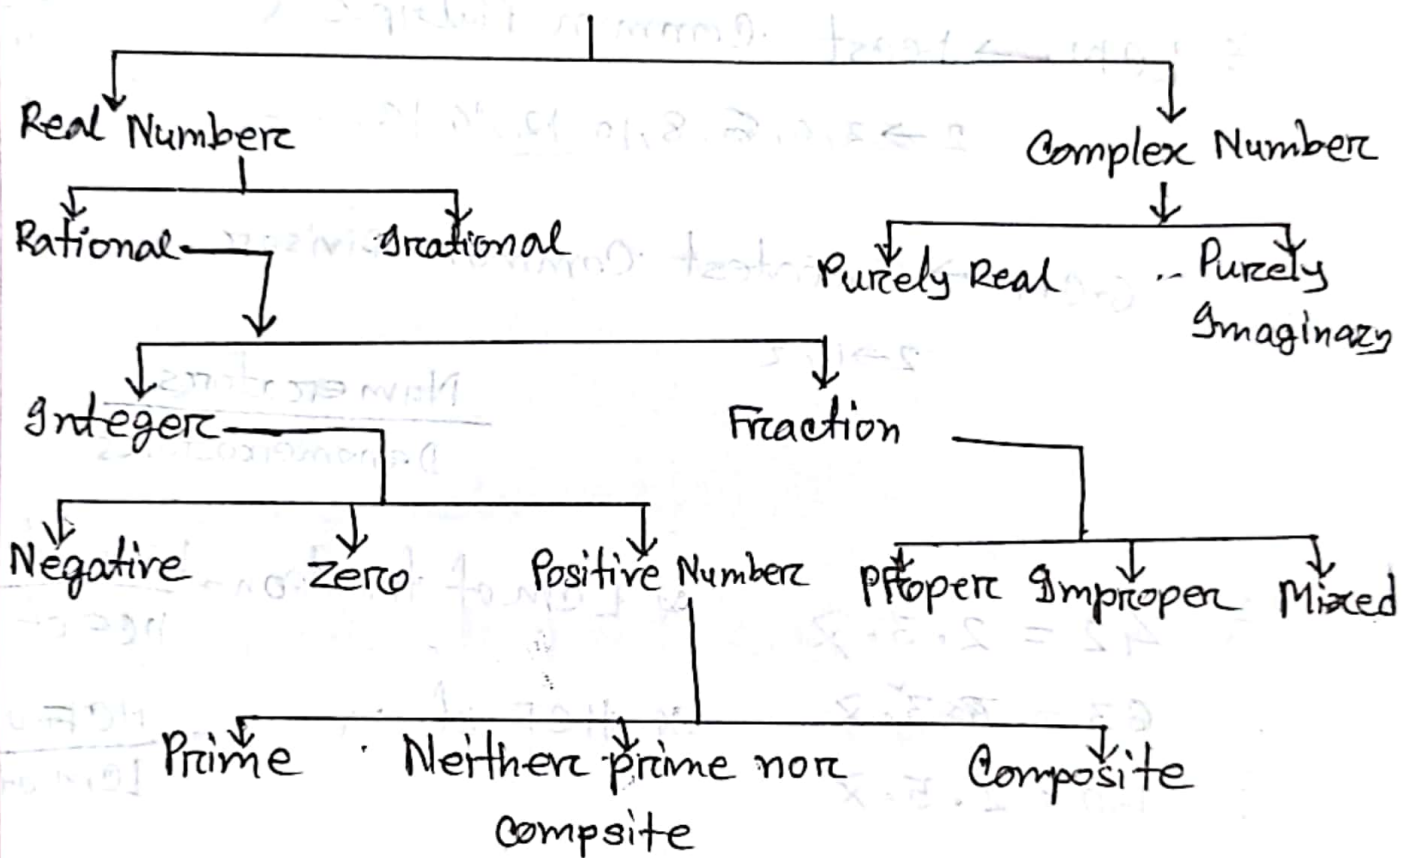 Real Number
Complex Number
Rational
Irational
Purely Real
Purely
Imaginary
Integer
Fraction
Negative
Zero
Positive Number
Proper
Improper
Mixed
Prime
Neither prime nor
compsite
Composite